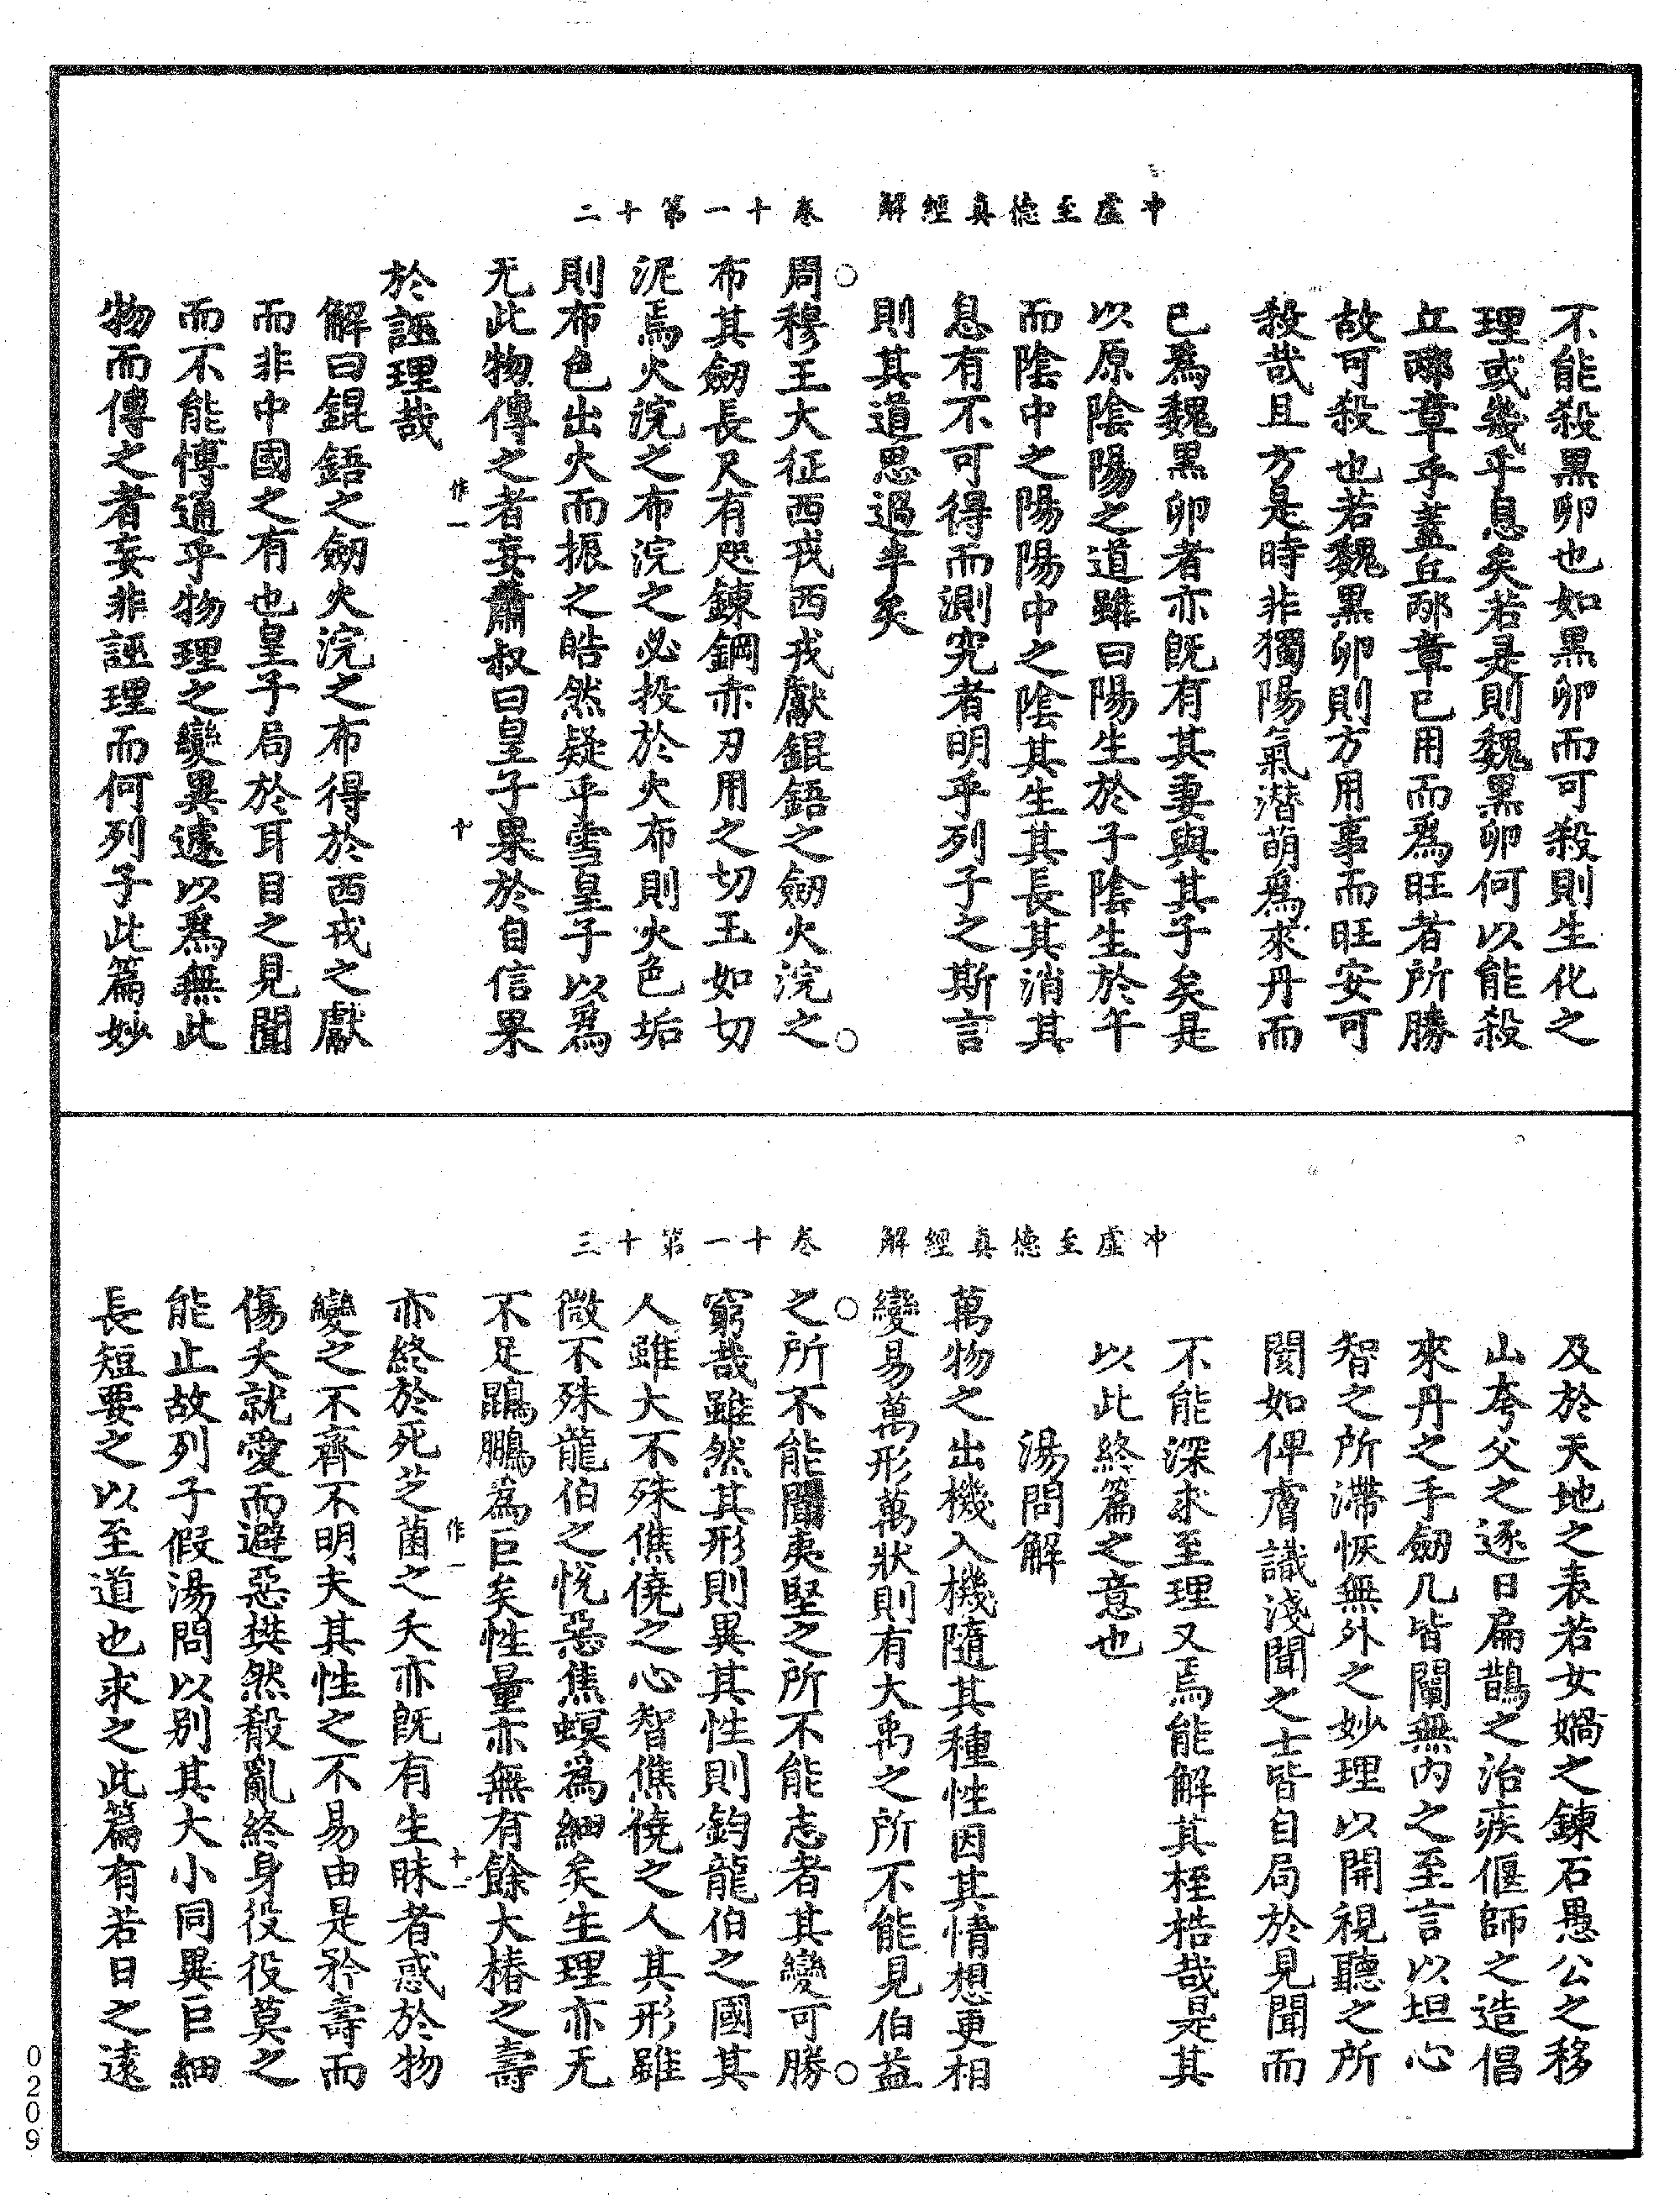 冲虛至德真經解　卷十一第十二
不能殺黑卵也如黑卵而可殺則生化之
理或幾乎息矣若是則魏黑卵何以能殺
丘邴章乎蓋丘邴章已用而爲旺者所勝
故可殺也若魏黑卵則方用事而旺安可
殺哉且方是時非獨陽氣潛萌爲來丹而
已爲魏黑卵者亦旣有其妻與其子矣是
以原陰陽之道雖曰陽生於子陰生於午
而陰中之陽陽中之陰其生其長其消其
息有不可得而測究者明乎列子之斯言
則其道思過半矣
周穆王大征西戎西戎獻錕鋙之劒火浣之
布其劒長尺有咫鍊鋼赤刃用之切玉如切
泥焉火浣之布浣之必投於火布則火色垢
則布色出火而振之皓然疑乎雪皇子以爲
无此物傳之者妄蕭叔曰皇子果於自信果
作一　十
於誣理哉
解曰錕鋙之劒火浣之布得於西戎之獻
而非中國之有也皇子局於耳目之見聞
而不能愽通乎物理之變異遽以爲無此
物而傳之者妄非誣理而何列子此篇妙
冲虛至德真經解　卷十一第十三
及於天地之表若女媧之鍊石愚公之移
山夸父之逐日扁鵲之治疾偃師之造倡
來丹之手劒几皆闡無內之至言以坦心
智之所滯恢無外之妙理以開視聽之所
閡如俾膚識淺聞之士皆自局於見聞而
不能深求至理又焉能解其桎梏哉是其
以此終篇之意也
湯問解
萬物之出機入機隨其種性因其情想更相
變易萬形萬狀則有大禹之所不能見伯益
之所不能聞夷堅之所不能志者其變可勝
窮哉雖然其形則異其性則鈞龍伯之國其
人雖大不殊僬僥之心智僬僥之人其形雖
微不殊龍伯之悅惡焦螟爲細矣生理亦无
不足鵾鵬爲巨矣性量亦無有餘大椿之壽
作一　十一
亦終於死芝菌之夭亦旣有生昧者惑於物
變之不齊不明夫其性之不易由是矜壽而
傷夭就愛而避惡㷫然殽亂終身役役莫之
能止故列子假湯問以别其大小同異巨細
長短要之以至道也求之此篇有若日之遠
0209